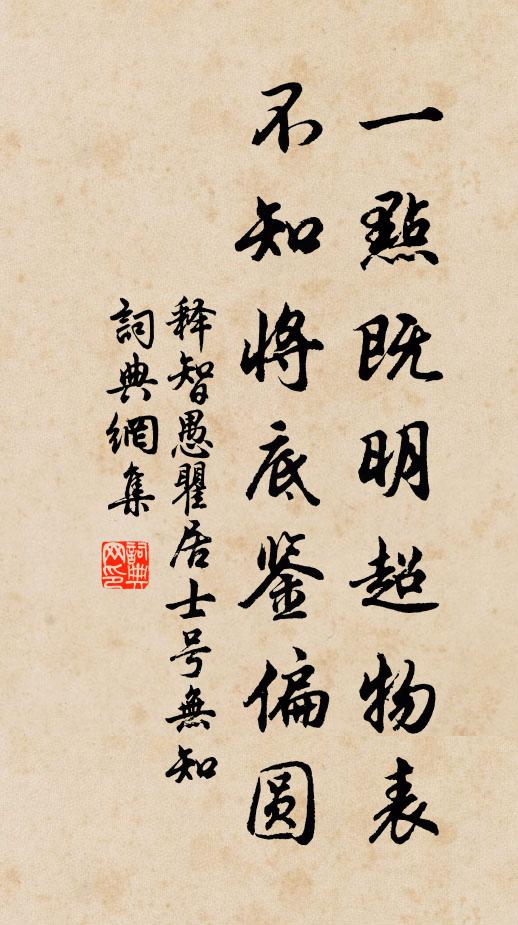 一點既明超物表
不知将底鉴偏圆
释智愚瞿居士号無知
詞典網集
詞典网印